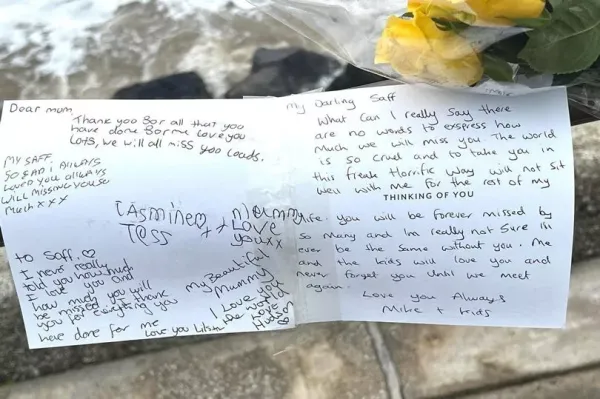 Dear mum
Thank you 8or all that you
have done 8or me Love you
Lots, we will all miss you Loads.
MY SAFF.
SO SAD I ALWAYS
LOVED YOU ALLWAYS
WILL MISSING YOU SO
MUCH X X X
TESS xx
mummy
Love
you xx
to Saff. ♡
I never really
told you how much
I love you and
how much you will
be missed
you for everything you
have done for me Love you
My Beautiful
Mummy
I Love you
the world
Love
Hudson
My Darling Saff
What Can I really Say there
are no words to exspress how
Much we will miss you. The World
is So cruel and to take you in
this freak Horrific Way will not Sit
Well with Me for the rest of my
THINKING OF YOU
life. you will be forever missed by
So many and Im really not Sure ill
ever be the Same without you. Me
and the kids will love you and
never forget you Until we meet
again.
Love you Always
Mike + kids